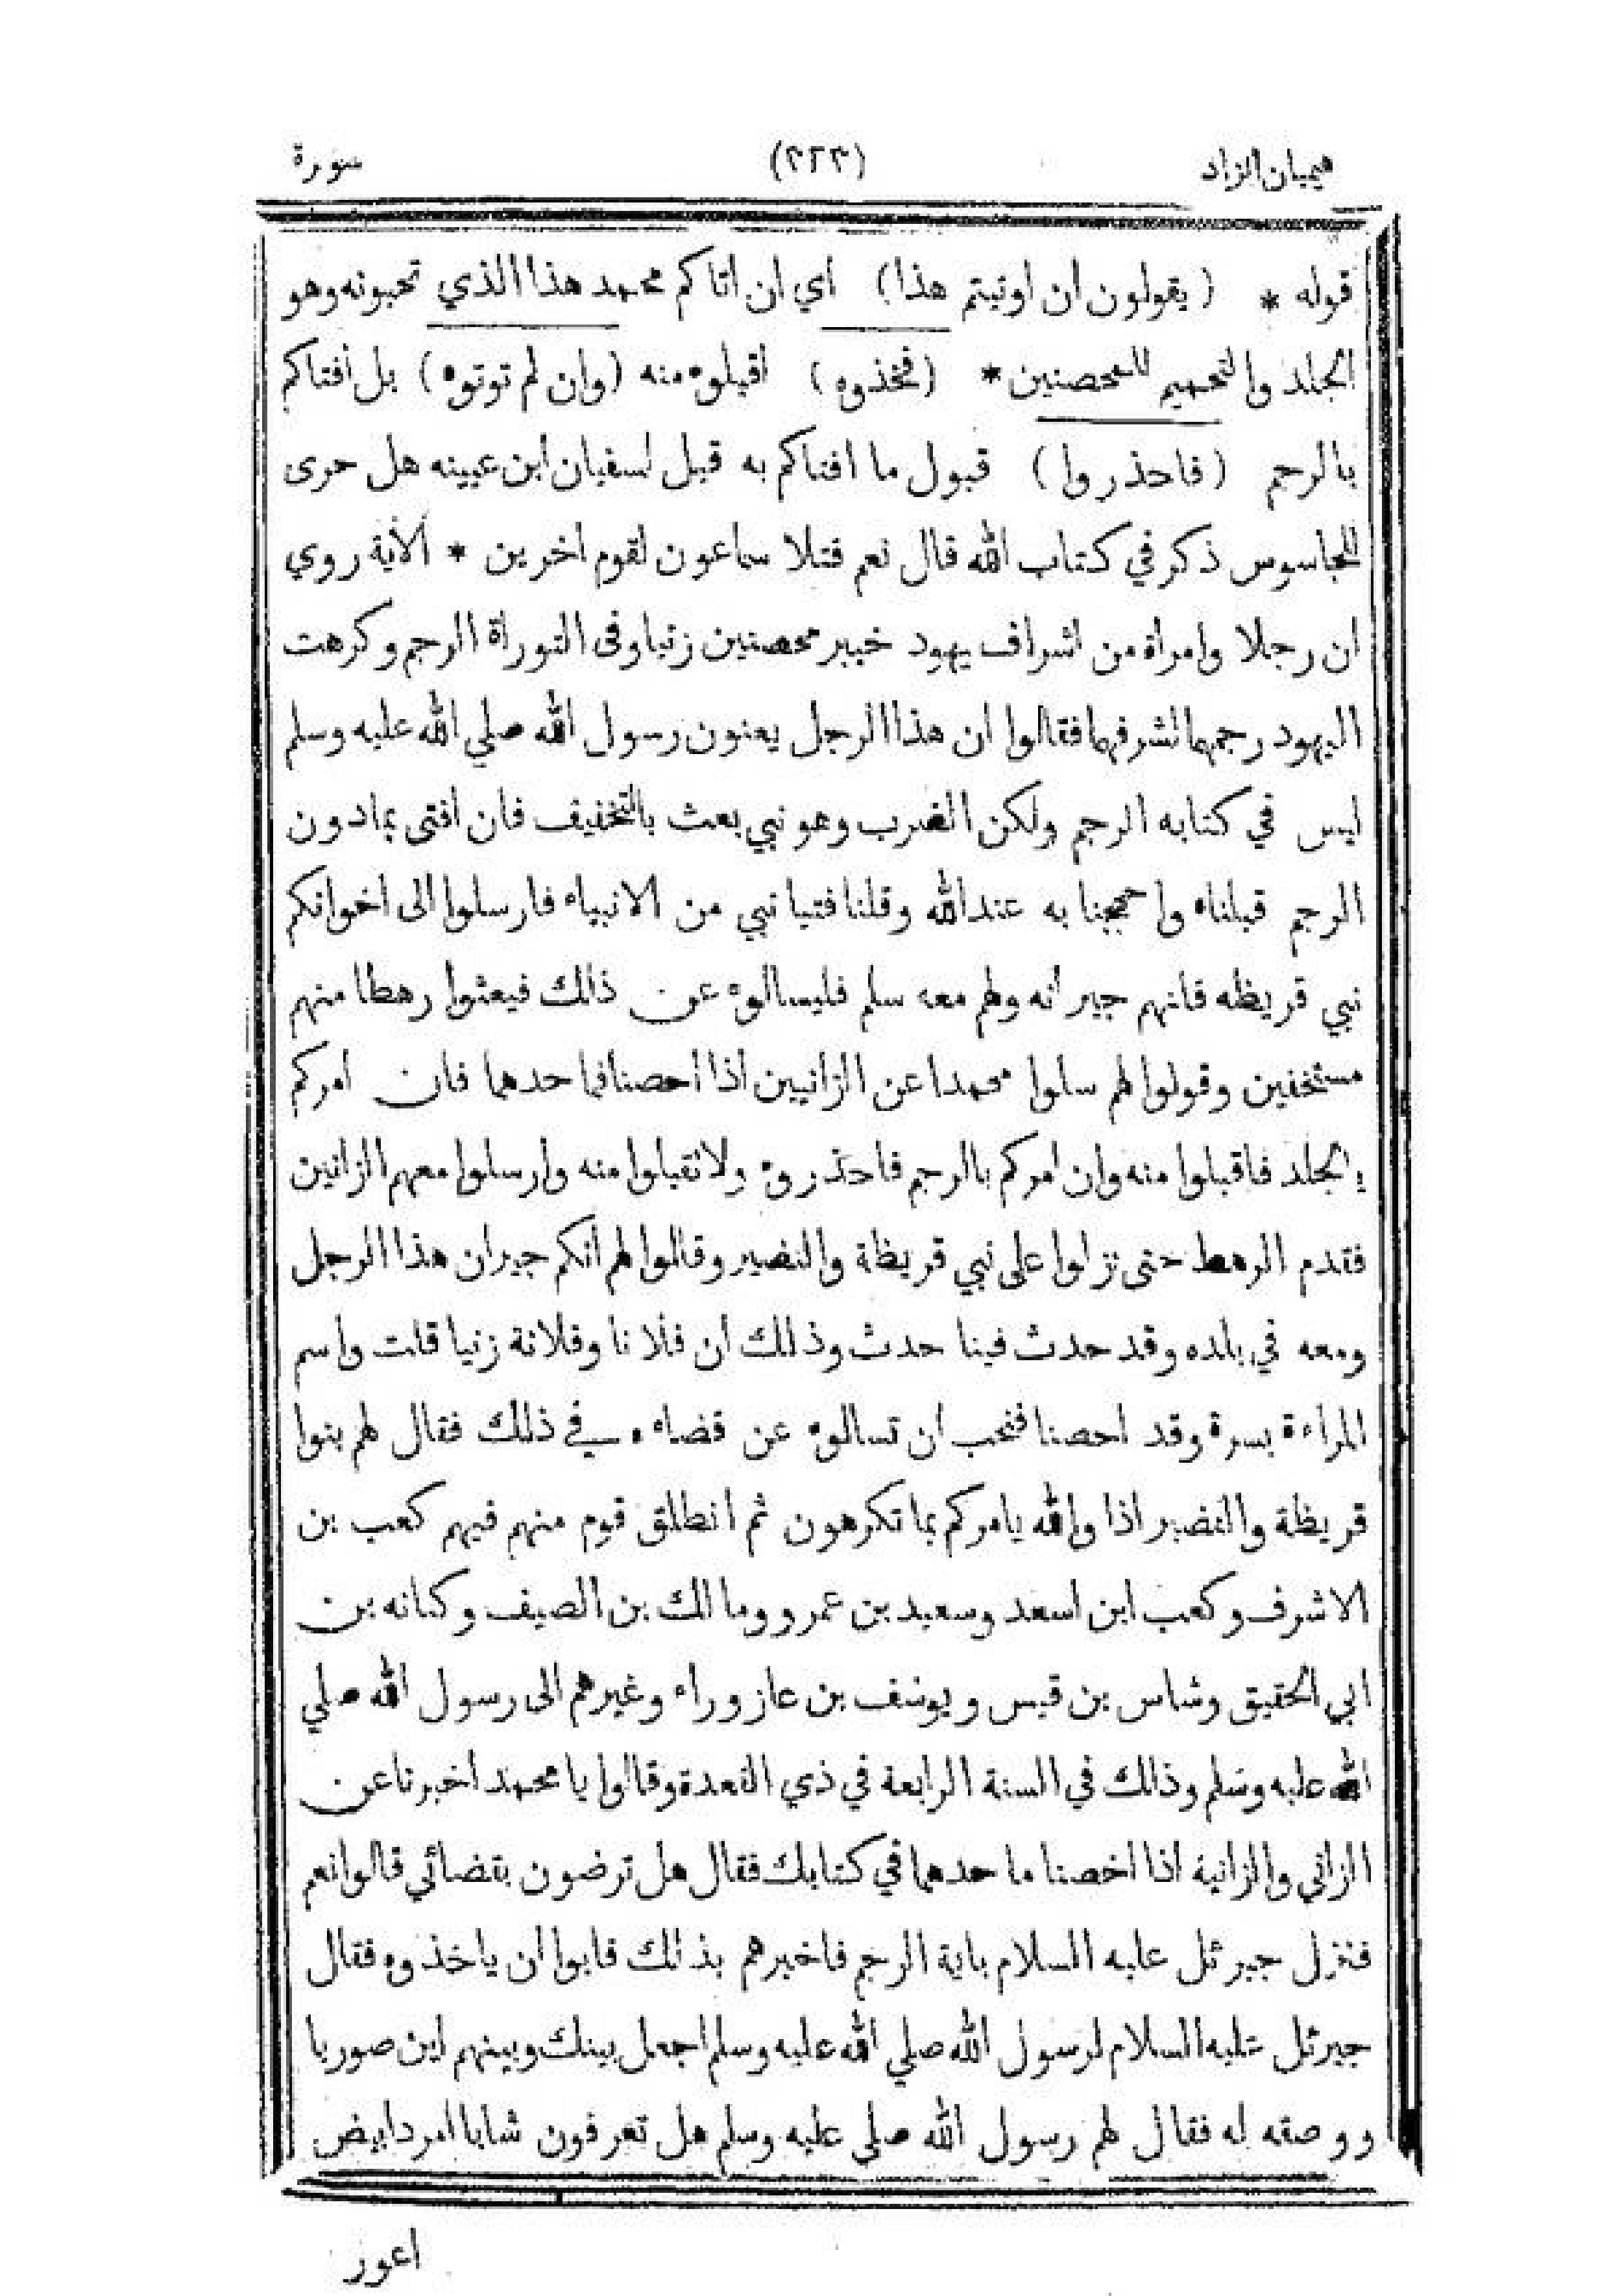 هيميان الزاد (٢٢٣) سورة
قوله * ( يقولون ان اوتيتم هذا ) أي ان اتاكم محمد هذا الذي تحبونه وهو
الجلد والتحميم للمحصنين * ( فخذوه ) اقبلوه منه ( وان لم توتوه ) بل افتاكم
بالرجم ( فاحذروا ) قبول ما افتاكم به قيل لسفيان ابن عيينه هل جرى
للجاسوس ذكر في كتاب الله قال نعم فتلا سماعون لقوم اخرين * الأية روي
ان رجلا وامرأة من اشراف يهود خيبر محصنين زنيا وفى التوراة الرجم وكرهت
اليهود رجمهما لشرفهما فقالوا ان هذا الرجل يعنون رسول الله صلي الله عليه وسلم
ليس في كتابه الرجم ولكن الضرب وهو نبي بعث بالتخفيف فان افتى بمادون
الرجم قبلناه واحججنا به عند الله وقلنا فتيا نبي من الانبياء فارسلوا الى اخوانكم
نبي قريظه فانهم جيرانه ولهم معه سلم فليسالوه عن ذالك فيعثوا رهطا منهم
مستخفين وقولوا لهم سلوا محمدا عن الزانيين اذا أحصنا فما حدهما فان امركم
بالجلد فاقبلوا منه وان امركم بالرجم فاحذروه ولا تقبلوا منه وارسلوا معهم الزانين
فقدم الرهط حتى نزلوا على نبي قريظة والنضير وقالوا لهم انكم جيران هذا الرجل
ومعه في بلده وقد حدث فينا حدث وذلك ان فلانا وفلانة زنيا قلت واسم
المراءة بسرة وقد احصنا فنحب ان تسالوه عن قضاءه في ذلك فقال لهم بنوا
قريظة والنضير اذا والله يامركم بما تكرهون ثم انطلق قوم منهم فيهم كعب بن
الاشرف وكعب ابن اسعد وسعيد بن عمرو ومالك بن الصيف وكنانه بن
ابي الحقيق وشاس بن قيس ويوسف بن عازوراء وغيرهم الى رسول الله صلي
الله عليه وسلم وذالك في السنة الرابعة في ذي القعدة وقالوا يا محمد اخبرنا عن
الزاني والزانية اذا احصنا ما حدهما في كتابك فقال هل ترضون بقضائي قالوا نعم
فنزل جبرئل عليه السلام باية الرجم فاخبرهم بذلك فابوا ان ياخذوه فقال
جبرئل عليه السلام لرسول الله صلي الله عليه وسلم اجعل بينك وبينهم ابن صوريا
ووصفه له فقال لهم رسول الله صلى عليه وسلم هل تعرفون شابا امرد ابيض
اعور